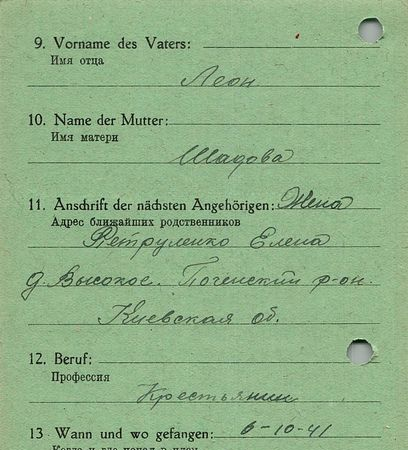 9. Vorname des Vaters:
Имя отца
Леон
10. Name der Mutter:
Имя матери
Шадова
11. Anschrift der nächsten Angehörigen: Жена
Адрес ближайших родственников
Петруленко Елена
д. Высокое. р-он.
Киевская об.
12. Beruf:
Профессия
Крестьянин
13 Wann und wo gefangen: 6-10-41
Когда и где попал в плен